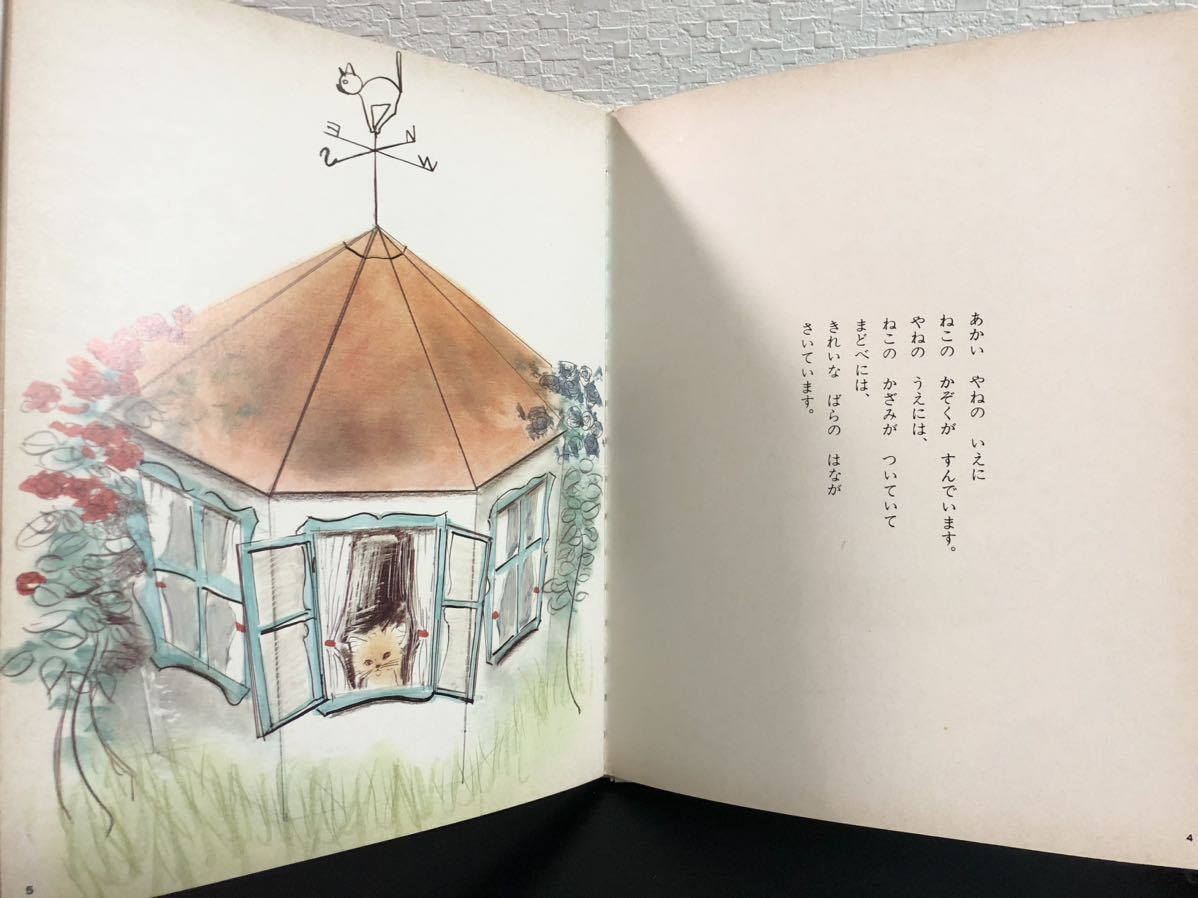 あかい やねの いえに
ねこの かぞくが すんでいます。
やねの うえには、
ねこの かざみが ついていて
まどべには、
きれいな ばらの はなが
さいています。
4
E
N
S
W
5